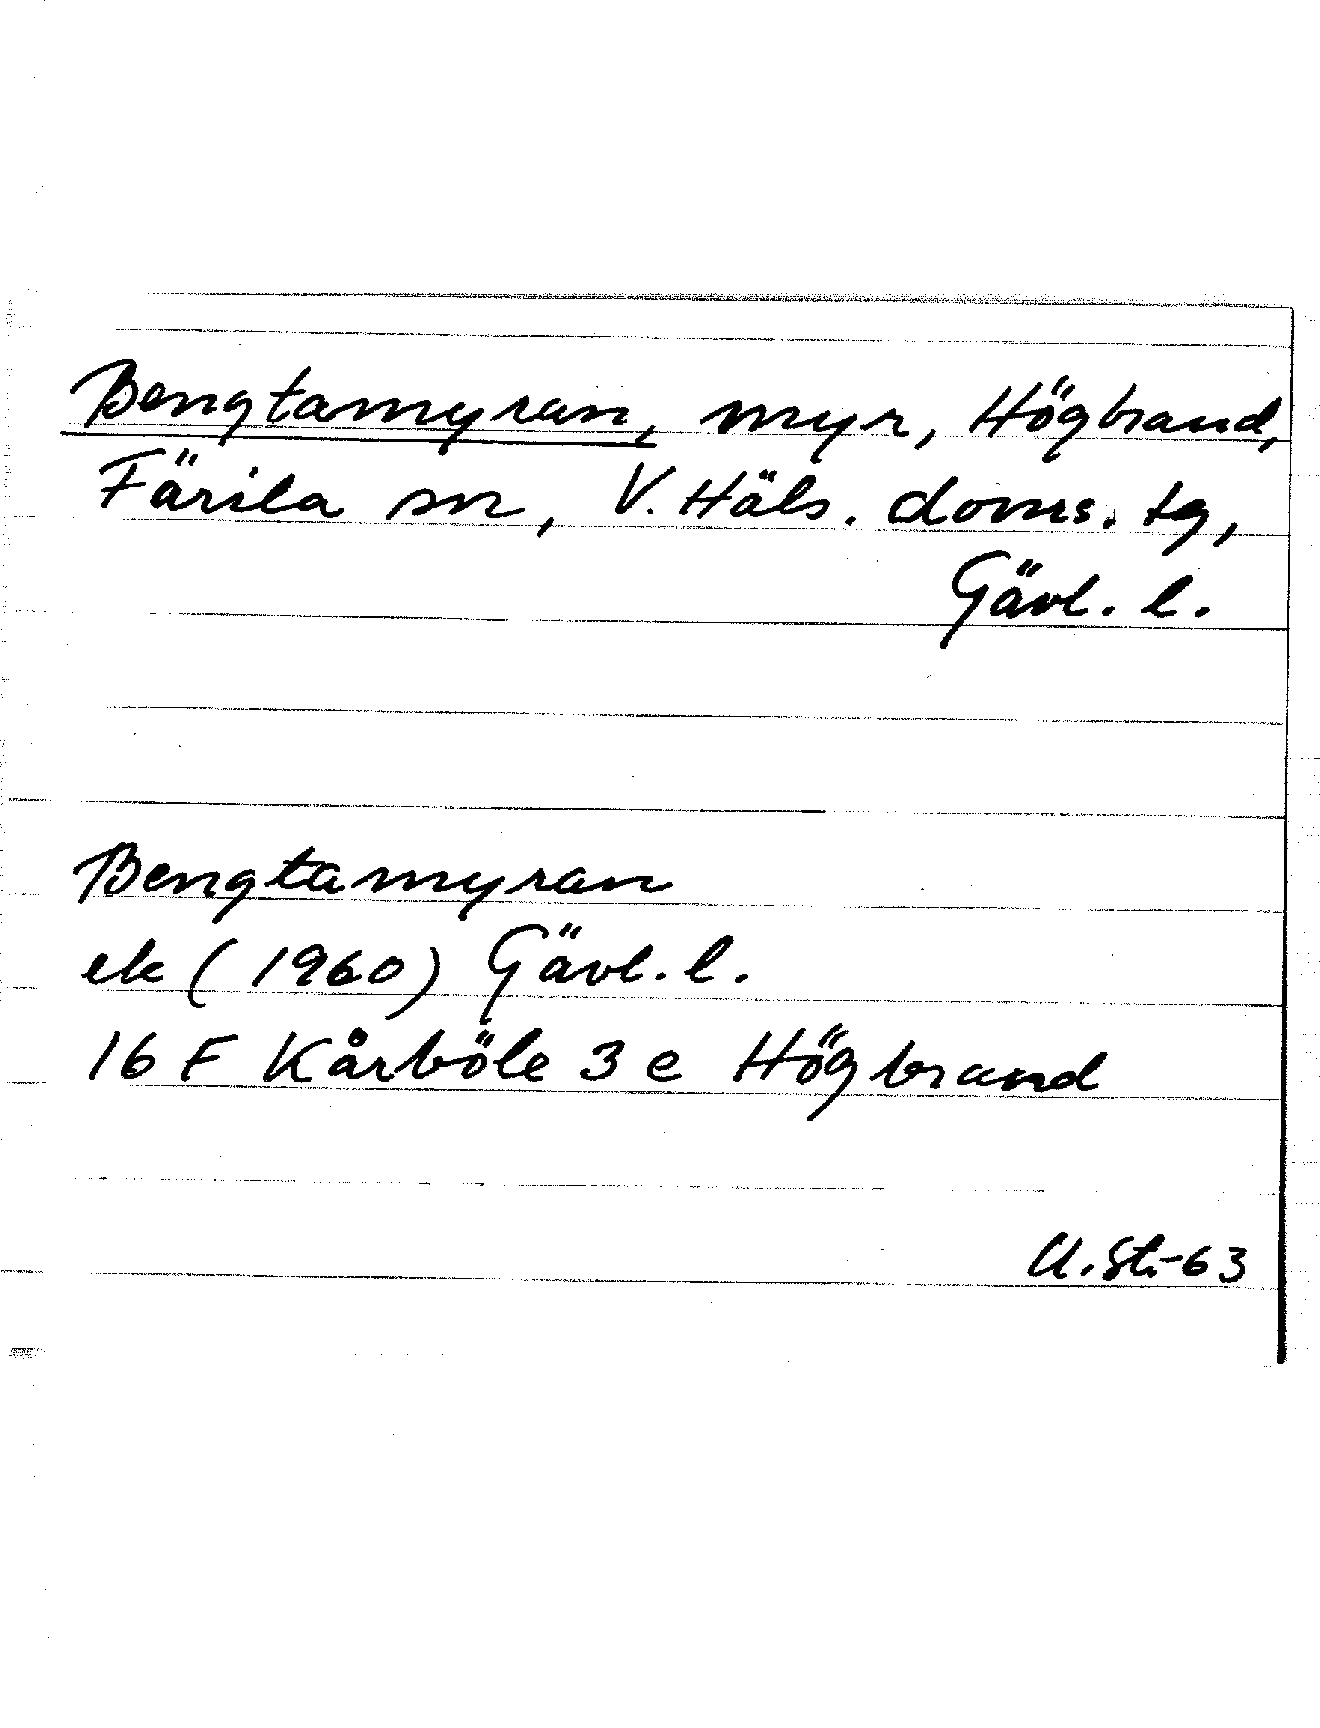 Bengtamyran, myr, Högbrand,
Färila sn, V. Häls. doms. tg,
Gävl. l.
Bengtamyran
ek (1960) Gävl. l.
16 F Kårböle 3 e Högbrand
U. St. -63